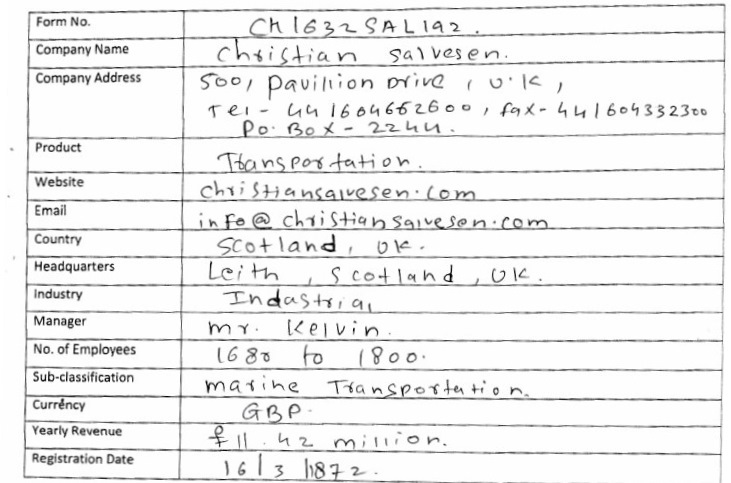 Form No. CH1632SAL192.
Company Name Christian Salvesen.
Company Address 500, Pavillion Drive, U.K,
Tel - 441604662600, fax - 441604332300
Po. Box - 2244.
Product Transportation.
Website christiansalvesen.com
Email info@christiansalvesen.com
Country Scotland, UK.
Headquarters Leith, Scotland, UK.
Industry Indastrial
Manager mr. Kelvin.
No. of Employees 1680 to 1800.
Sub-classification marine Transportation.
Currency GBP.
Yearly Revenue £11.42 million.
Registration Date 16/3/1872.